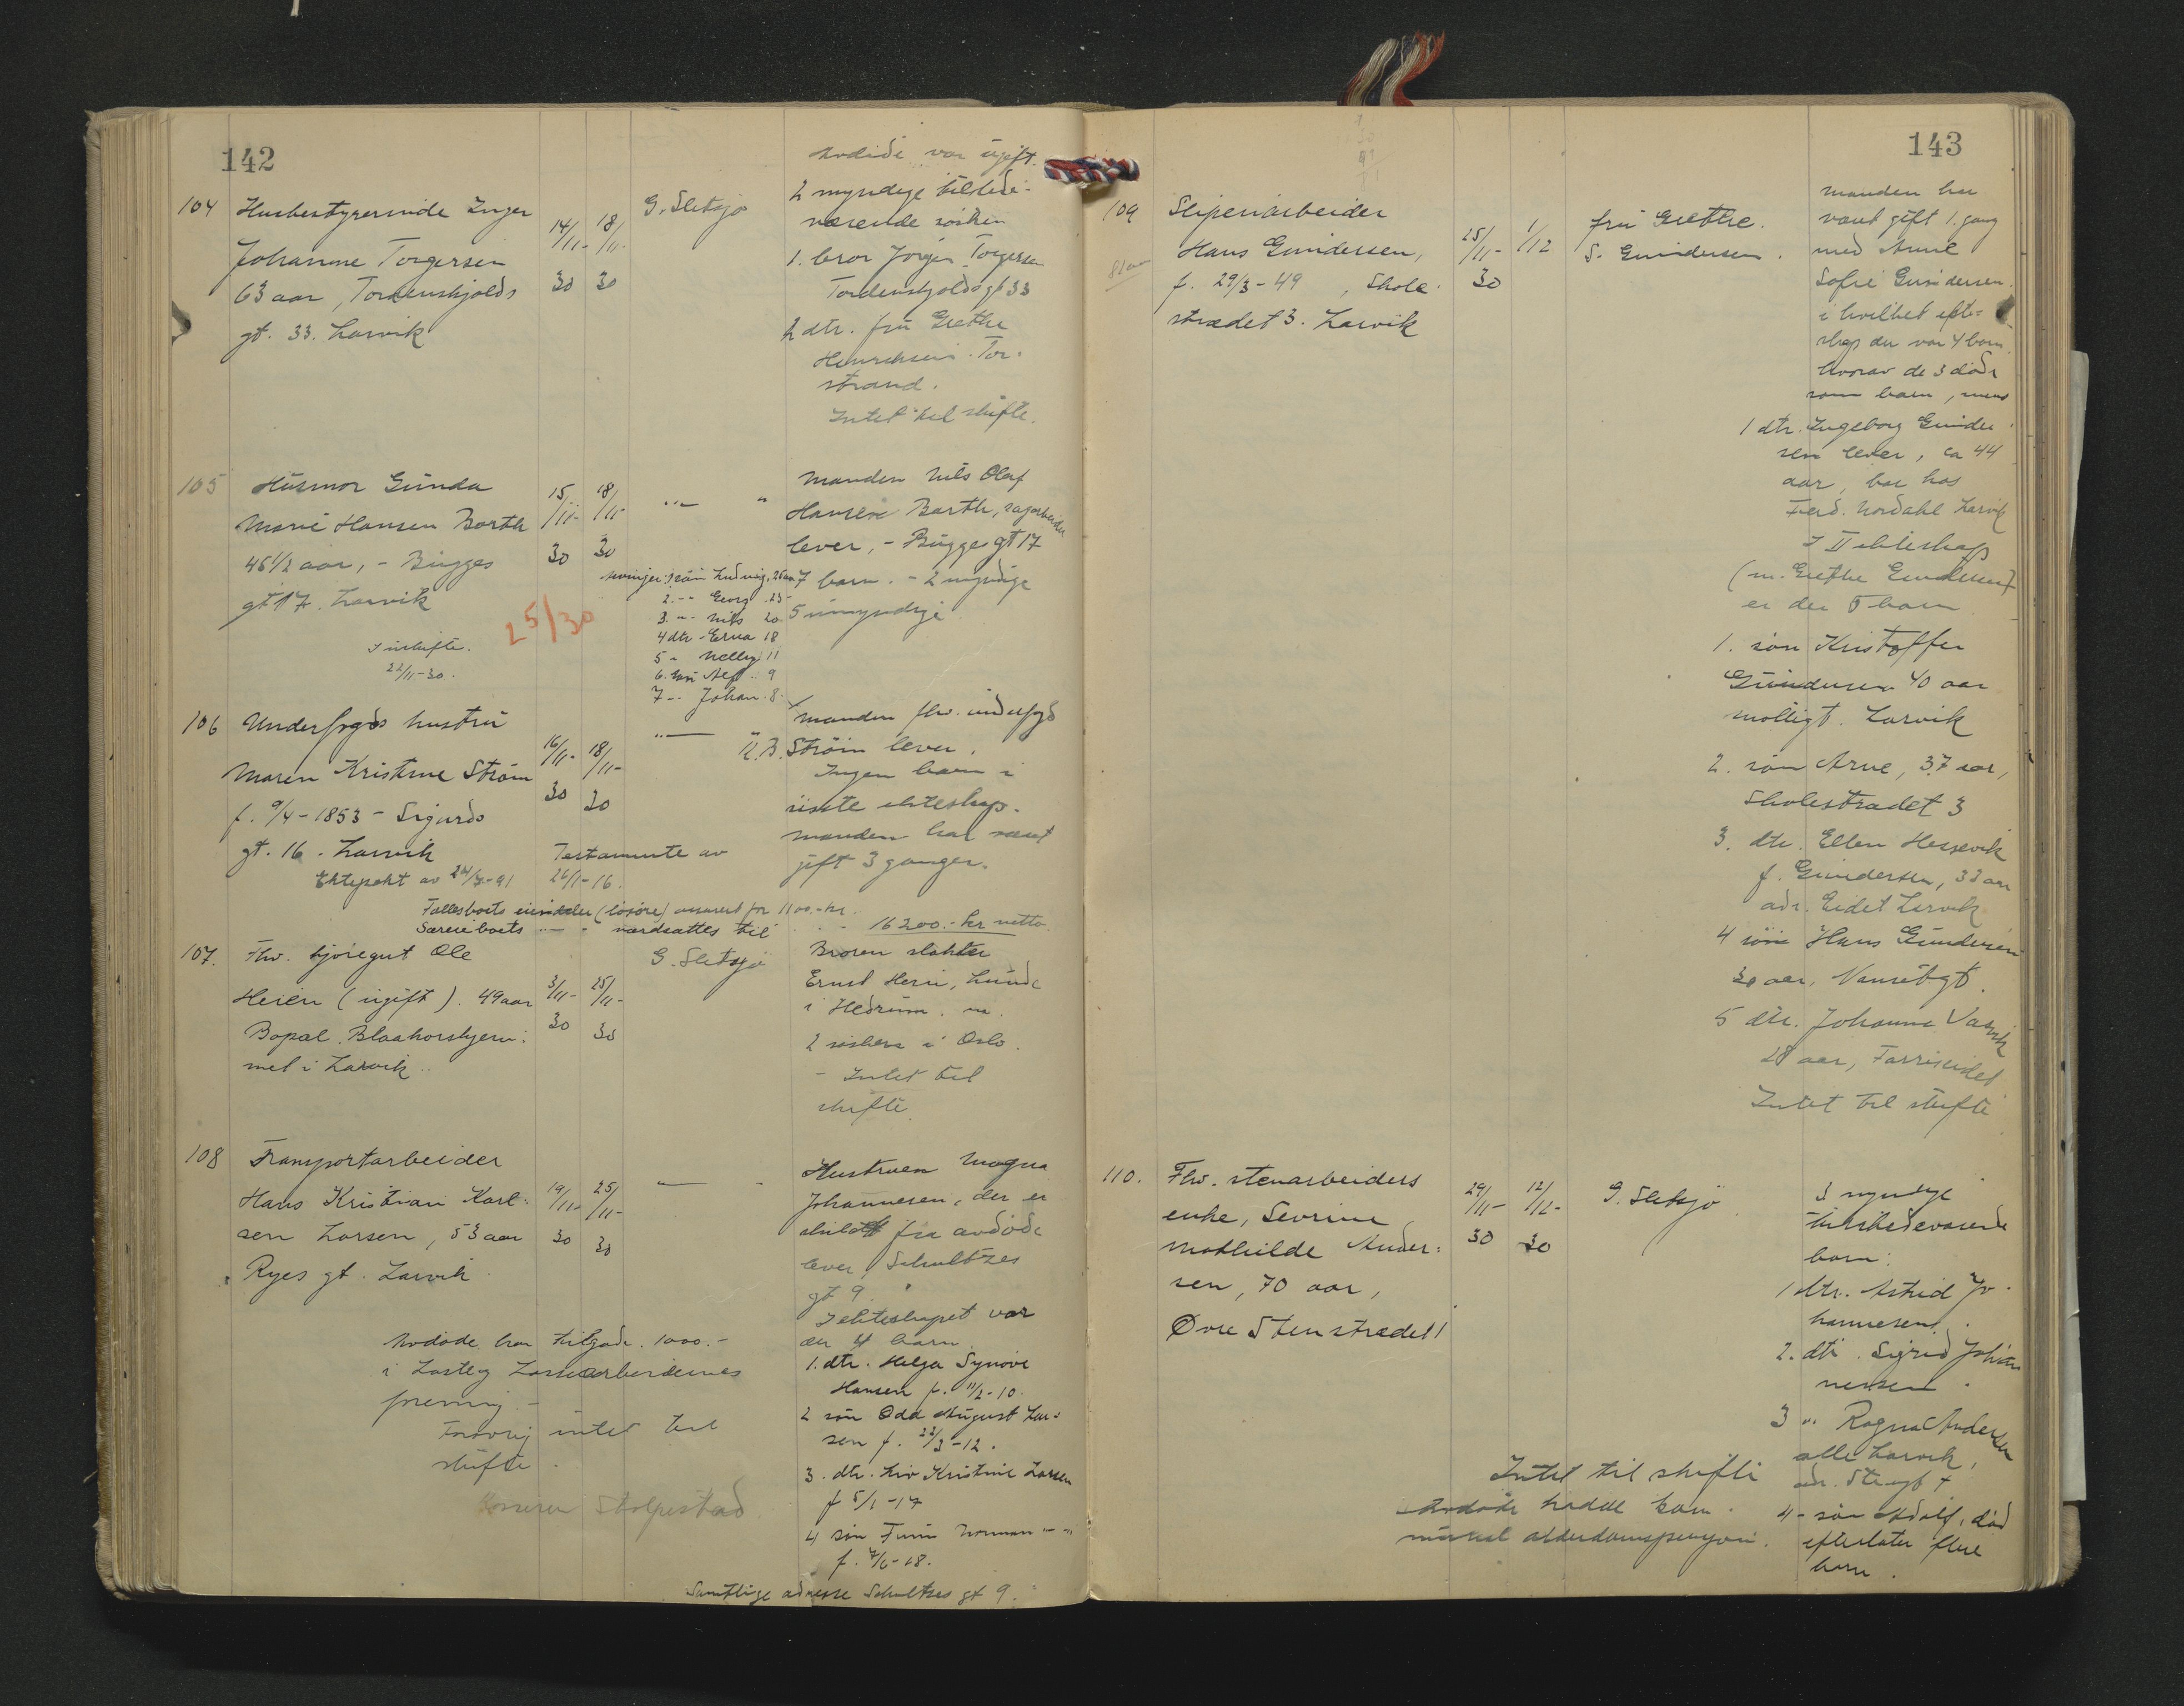 142
Avdøde var ugift.
104 Husbestyrerinde Inger 14/11- 18/11- G. Sletsjø 2 myndige tilstede-
Johanne Torgersen 30 30 værende søsken
63 aar, Tordenskjolds 1. bror Jørgen Torgersen
gt. 33. Larvik Tordenskjoldsgt 33
2 dtr. fru Grethe
Henriksen. Tor-
strand.
Intet til skifte.
105 Husmor Gunda 15/11- 18/11- " — " Manden Nils Olaf
Marie Hansen Barth 30 30 Hansen Barth, sagarbeider
45 1/2 aar, - Bugges lever, - Bugges gt 17
gt 17. Larvik 7 barn. - 2 myndige
5 umyndige
arvinger: 1. søn Ludvig, 26 aar
2. -" Georg 23-
3. -" Nils 20.
4 dtr - Erna 18
5 - Nelly 11
6. søn Alf .. 9
7 -. Johan. 8.
25/30
I uskifte.
22/11-30.
106 Underfogds hustru 16/11- 18/11- " — Manden fhv. underfogd
Maren Kristine Strøm 30 30 N.B. Strøm lever.
f. 9/4-1853 - Sigurds Ingen barn i
gt. 16. Larvik siste ekteskap.
Manden har været
gift 3 ganger.
Testamente av
Ektepakt av 24/7-91 26/1-16.
Fællesboets eiendeler (løsøre) ansaaes for 1100.- kr.
Særeieboets " — " værdsættes til . . - 16200.- kr netto.
107. Fhv. kjøregut Ole 3/11- 25/11- G. Sletsjø Broren slakter
Heien (ugift). 49 aar 30 30 Ernst Heien, Lunde
Bopæl. Blaakorshjem- i Hedrum.
met i Larvik.. 2 søskere i Oslo.
- Intet til
skifte.
108 Transportarbeider 19/11- 25/11- — " Hustruen Magna
Hans Kristian Karl- 30 30 Johannesen, der er
sen Larsen, 53 aar skildt fra avdøde
Ryes gt. Larvik. lever, Schultzes
gt 9.
I ekteskapet var
der 4 barn.
Avdøde har tilgode 1000.-
i Laste og Lossearbeidernes
forening -
Forøvrig intet til
skifte.
1. dtr. Helga Synøve
Hansen f. 11/2-10.
2 søn Odd August Lar-
sen f. 22/3-12.
3. dtr. Liv Kristine Larsen
f 5/1-17
4 søn Finn Norman " - "
f. 7/6-18.
Samtlige adresse Schultzes gt 9.
143
109 Sliperiarbeider 25/11- 1/12 fru Grethe Manden har
Hans Gundersen, 30 S. Gundersen. været gift 1. gang
81 aar f. 29/3-49, Skole- med Anne
strædet 3. Larvik Sofie Gundersen.
i hvilket ekte-
skap der var 4 barn
hvorav de 3 døde
som barn, mens
1 dtr. Ingeborg Gunder-
sen lever, ca 44
aar, bor hos
Ferd. Nordahl Larvik
I II ekteskap
(m. Grethe Gundersen)
er der 5 barn
1. søn Kristoffer
Gundersen 40 aar
Møllegt. Larvik
2. søn Arne, 37 aar,
Skolestrædet 3
3. dtr. Ellen Hessevik
f. Gundersen, 33 aar
adr. Eidet Larvik
4 søn Hans Gundersen
30 aar, Nansetgt.
5 dtr. Johanne Vassvik
28 aar, Farriseidet
Intet til skifte
110. Fhv. stenarbeiders 29/11- 12/12- G. Sletsjø 3 myndige
enke, Sevrine 30 30 tilstedeværende
Mathilde Ander- barn:
sen, 70 aar, 1 dtr. Astrid Jo-
Øvre Stenstrædet 1 hannesen.
2. dtr. Sigrid Johan-
nesen.
3 " Ragna Andersen
alle Larvik,
Intet til skifte
Avdøde hadde kom-
munal alderdomspensjon.
4 - søn Adolf, død
efterlater flere
barn.